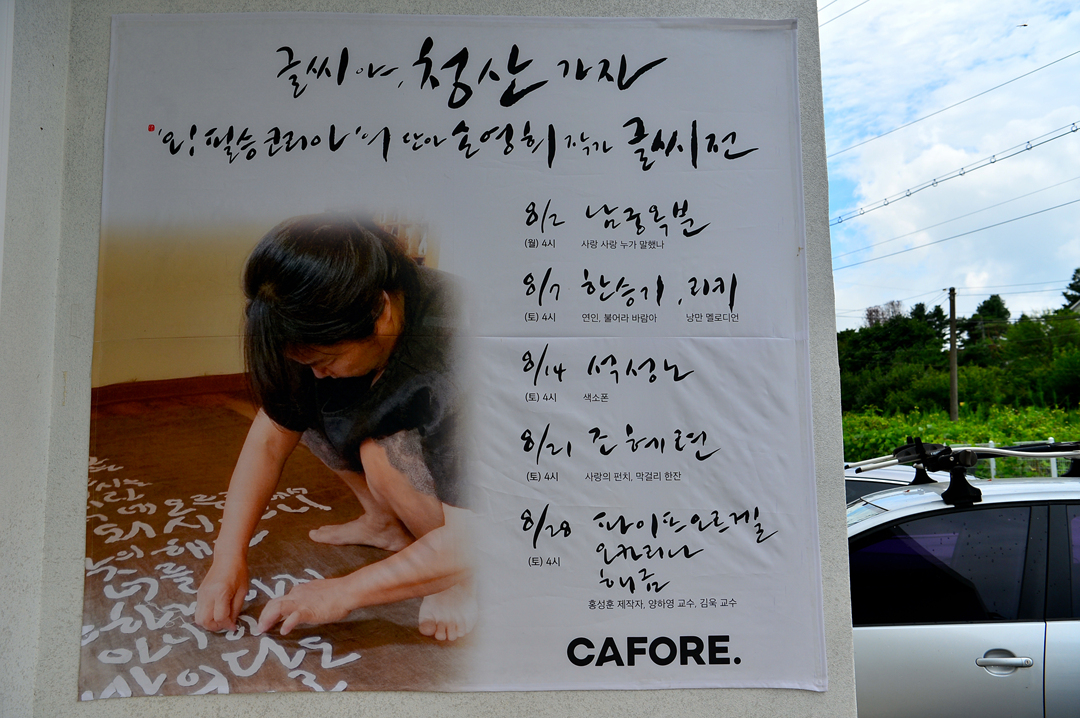 글씨야, 청산 가자
'오! 필승 코리아'의 단아 손영희 작가 글씨전
8/2 남궁옥분
(월) 4시 사랑 사랑 누가 말했나
8/7 한승기, 리키
(토) 4시 연인, 불어라 바람아 낭만 멜로디언
8/14 석성노
(토) 4시 색소폰
8/21 조혜련
(토) 4시 사랑의 펀치, 막걸리 한잔
8/28 파이프오르게일
오카리나
(토) 4시 해금
홍성훈 제작자, 양하영 교수, 김욱 교수
CAFORE.